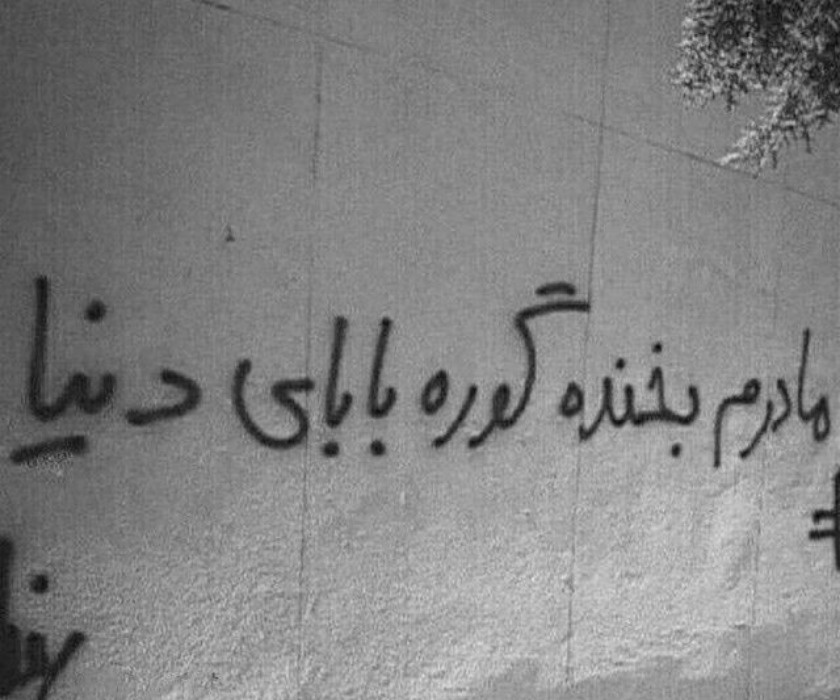 مادرم بخنده گوره بابای دنیا